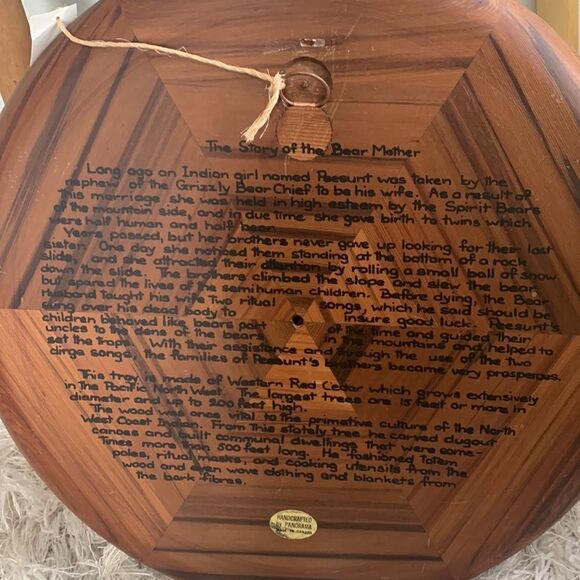 The Story of the Bear Mother
Long ago an Indian girl named Peesunt was taken by the
nephew of the Grizzly Bear Chief to be his wife. As a result of
this marriage she was held in high esteem by the Spirit Bears
of the mountain side, and in due time she gave birth to twins which
were half human and half bear.
Years passed, but her brothers never gave up looking for their lost
sister. One day she noticed them standing at the bottom of a rock
slide, and she attracted their attention by rolling a small ball of snow
down the slide. The brothers climbed the slope and slew the bear,
but spared the lives of the semihuman children. Before dying, the Bear
husband taught his wife two ritual songs, which he said should be
sung over his dead body to insure good luck. Peesunt's
children behaved like bears part of the time and guided their
uncles to the dens of the bears in the mountains and helped to
set the traps. With their assistance and through the use of the two
dirge songs, the families of Peesunt's brothers became very prosperous.
This tray is made of Western Red Cedar which grows extensively
in the Pacific North West. The largest trees are 15 feet or more in
diameter and over 200 feet high.
The wood was once vital to the primative culture of the North
West Coast Indian. From this stately tree he carved dugout
canoes and built communal dwellings that were some-
times more than 500 feet long. He fashioned totem
poles, ritual masks, and cooking utensils from the
wood and even wove clothing and blankets from
the bark fibres.
HANDCRAFTED
BY PANORAMA